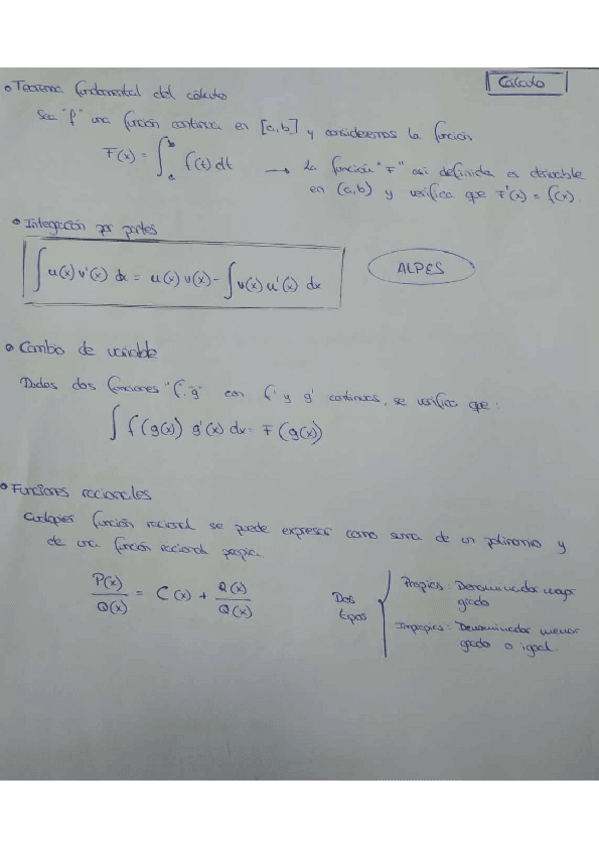 Cálculo
• Teorema fundamental del cálculo
Sea "f" una función continua en [a,b] y consideremos la función
F(x) = ∫ₐᵇ f(t) dt → La función "F" así definida es derivable
en (a,b) y verifica que F'(x) = f(x).
• Integración por partes
∫u(x)v'(x) dx = u(x)v(x) - ∫v(x)u'(x) dx
ALPES
• Cambio de variable
Dadas dos funciones "f, g" con f' y g' continuas, se verifica que:
∫ f(g(x)) g'(x) dx = F(g(x))
• Funciones racionales
Cualquier función racional se puede expresar como suma de un polinomio y
de una función racional propia.
P(x)/Q(x) = C(x) + R(x)/Q(x)
Dos
tipos
Propias: Denominador mayor
grado
Impropias: Denominador menor
grado o igual.